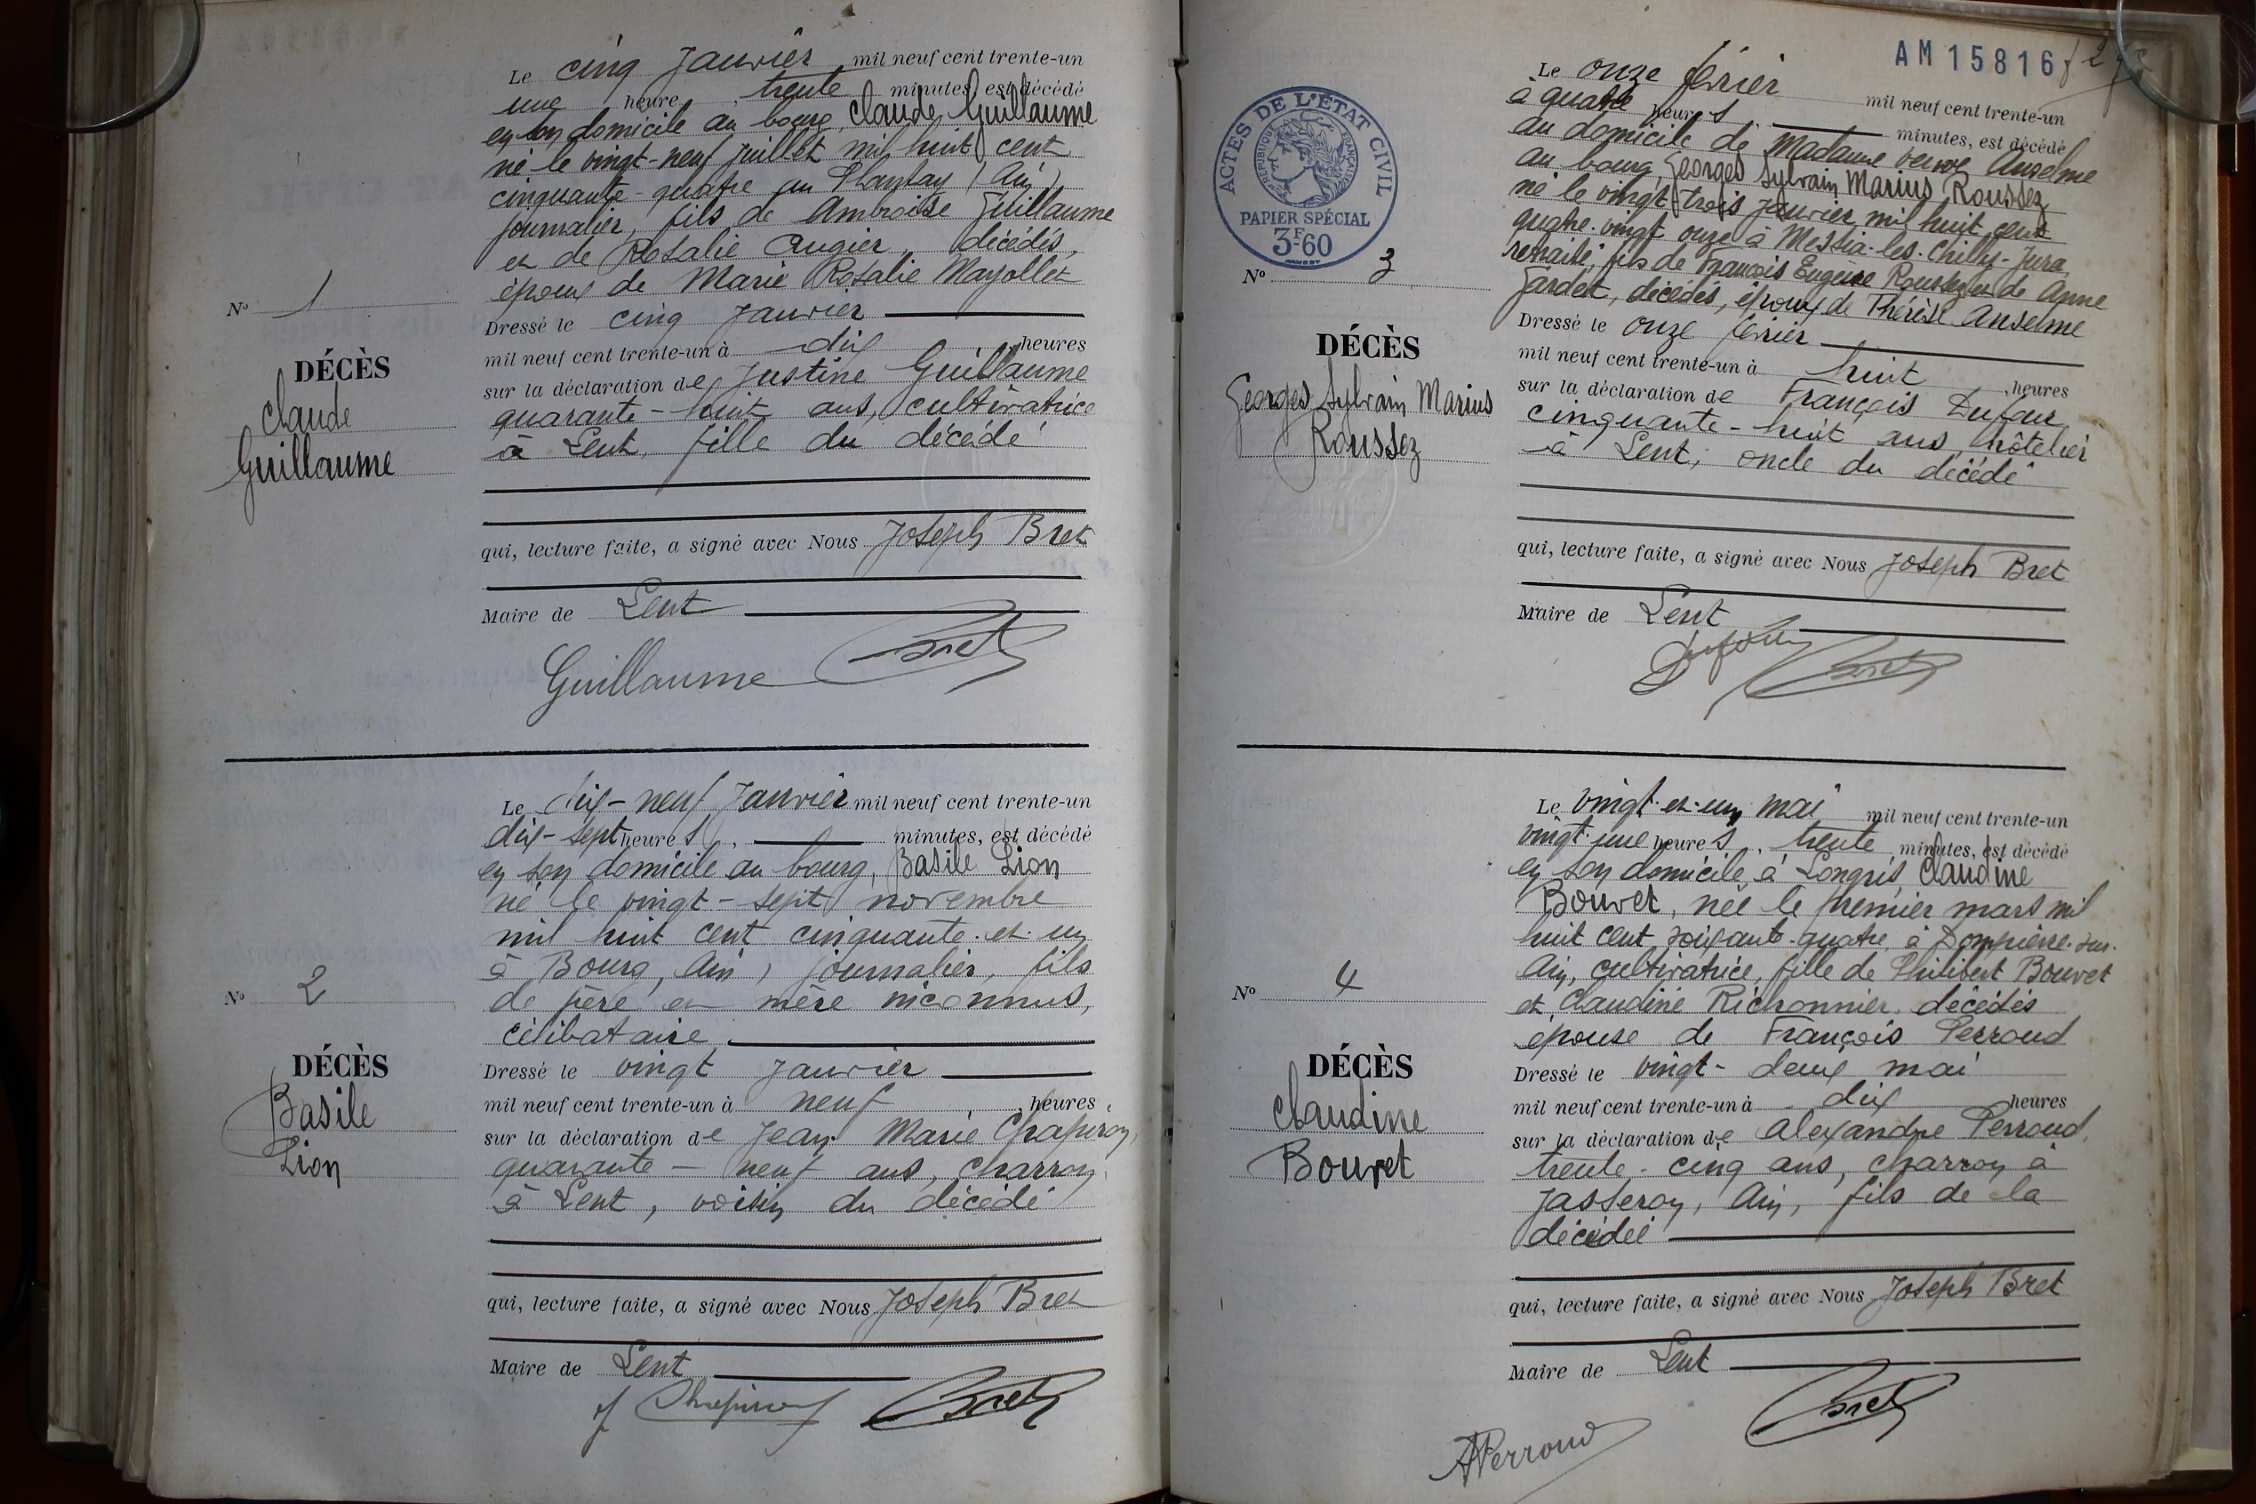 Le cinq janvier mil neuf cent trente-un
une heure, trente minutes, est décédé
en son domicile au bourg, Claude Guillaume
né le vingt-neuf juillet mil huit cent
cinquante-quatre au Plantay (Ain)
journalier, fils de Ambroise Guillaume
et de Rosalie Augier, décédés,
époux de Marie Rosalie Mayollet
Dressé le cinq janvier
mil neuf cent trente-un à dix heures
sur la déclaration de Justine Guillaume
quarante-huit ans, cultivatrice
à Lent, fille du décédé
qui, lecture faite, a signé avec Nous Joseph Bret
Maire de Lent
Guillaume Bret
N° 1
DÉCÈS
Claude
Guillaume
Le dix-neuf janvier mil neuf cent trente-un
dix-sept heures, minutes, est décédé
en son domicile au bourg, Basile Lion
né le vingt-sept novembre
mil huit cent cinquante-et-un
à Bourg, Ain, journalier, fils
de père et mère inconnus,
célibataire
Dressé le vingt janvier
mil neuf cent trente-un à neuf heures
sur la déclaration de Jean Marie Chapiron,
quarante-neuf ans, charron,
à Lent, voisin du décédé
qui, lecture faite, a signé avec Nous Joseph Bret
Maire de Lent
Chapiron Bret
N° 2
DÉCÈS
Basile
Lion
AM 15816
ACTES DE L'ÉTAT CIVIL
RÉPUBLIQUE FRANÇAISE
PAPIER SPÉCIAL
3F.60
Le onze février mil neuf cent trente-un
à quatre heures minutes, est décédé
au domicile de Madame veuve Anselme
au bourg, Georges Sylvain Marius Roussez
né le vingt trois janvier mil huit cent
quatre-vingt onze à Messia-les-Chilly-Jura,
retraité, fils de François Eugène Roussez et de Anne
Jardet, décédés, époux de Thérèse Anselme
Dressé le onze février
mil neuf cent trente-un à huit heures
sur la déclaration de François Dufour
cinquante-huit ans, hôtelier
à Lent, oncle du décédé
qui, lecture faite, a signé avec Nous Joseph Bret
Maire de Lent
Dufour Bret
N° 3
DÉCÈS
Georges Sylvain Marius
Roussez
Le vingt-et-un mai mil neuf cent trente-un
vingt-une heures, trente minutes, est décédé
en son domicile, à Longris, Claudine
Bouvet, née le premier mars mil
huit cent soixante-quatre, à Dompierre-sur-
Ain, cultivatrice, fille de Philibert Bouvet
et Claudine Richonnier, décédés
épouse de François Perroud
Dressé le vingt-deux mai
mil neuf cent trente-un à dix heures
sur la déclaration de Alexandre Perroud,
trente-cinq ans, charron à
Jasseron, Ain, fils de la
décédée
qui, lecture faite, a signé avec Nous Joseph Bret
Maire de Lent
Bret
APerroud
N° 4
DÉCÈS
Claudine
Bouvet